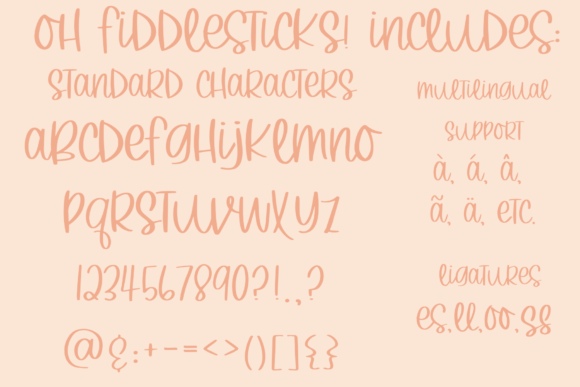 OH FIDDLESTICKS! INCLUDES:
STANDARD CHARACTERS
ABCDEFGHIJKLMNO
PQRSTUVWXYZ
1234567890?!.,?
@&:+-=<>()[]{}
MULTILINGUAL
SUPPORT
à, á, â,
ã, ä, ETC.
LIGATURES
ES,LL,OO,SS